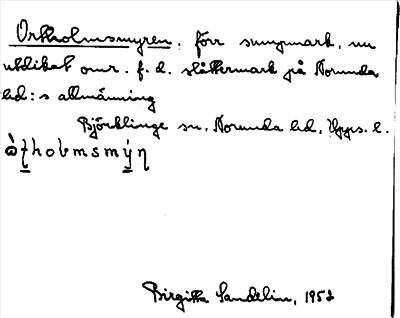 Ortholmsmyren, förr sumpmark, nu
utdikat omr. f. d. slåttermark på Norunda
hd:s allmänning
Björklinge sn, Norunda hd, Upps. l.
Birgitta Sandelin, 1952